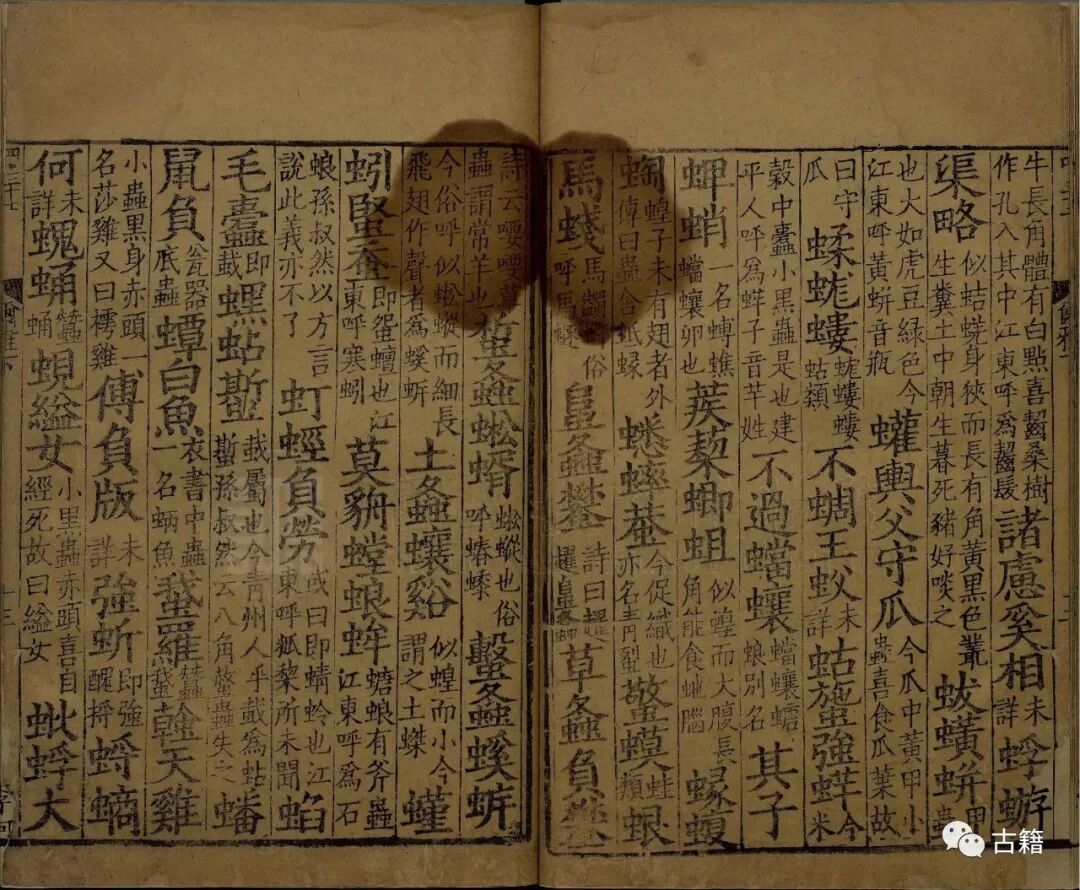 牛長角體有白點喜齧桑樹作孔入其中江東呼爲齧髮諸慮奚相未詳蜉蝣
渠略似蛣蜣身狹而長有角黃黑色叢生糞土中朝生暮死豬好啖之蛂蟥蛢甲蟲
也大如虎豆綠色今江東呼黃蛢音瓶蠸輿父守瓜今瓜中黃甲小蟲喜食瓜葉故
曰守瓜蝚蛖螻蛖螻螻蛄類不蜩王蚥未詳蛄䗐強蛘今米
穀中蠹小黑蟲是也建平人呼爲蛘子音芊姓不過蟷蠰蟷蠰螗蜋別名其子
蜱蛸一名䗚蟭蟷蠰卵也蒺藜蝍蛆似蝗而大腹長角能食蛇腦蝝蝮
蜪蝗子未有翅者外傳曰蟲舍蚳蝝蟋蟀蛬今促織也亦名青蛚蟼蟆蛙類蛝
馬䗃馬蠲俗呼馬皇螽蠜詩曰趯趯皇螽草螽負蠜
詩云喓喓草蟲謂常羊也蜤螽蜙蝑蜙蜙也俗呼蝽蟿螽螇蚸
今俗呼似蜙而細長飛翅作聲者爲螇蚸土螽蠰谿似蝗而小今謂之土螼
蚓豎蚕即蟺也江東呼寒蚓莫貈螳蜋蛑螗蜋有斧蟲江東呼爲石
蜋孫叔然以方言說此義亦不了虰蛵負勞或曰即蜻蛉也江東呼狐黎所未聞蜭
毛蠹即䖢蟔蛅蟴䖢屬也今青州人乎䖢爲蛅蟴孫叔然云八角螫蟲失之蟠
鼠負瓮器底蟲蟫白魚衣書中蟲一名蛃魚䖸羅蠶䖸螒天雞
小蟲黑身赤頭一名莎雞又曰樗雞傅負版未詳強蚚即強醜捋蛶螪
何未詳螝蛹蠶蛹蜆縊女小黑蟲赤頭喜自經死故曰縊女蚍蜉大
古籍